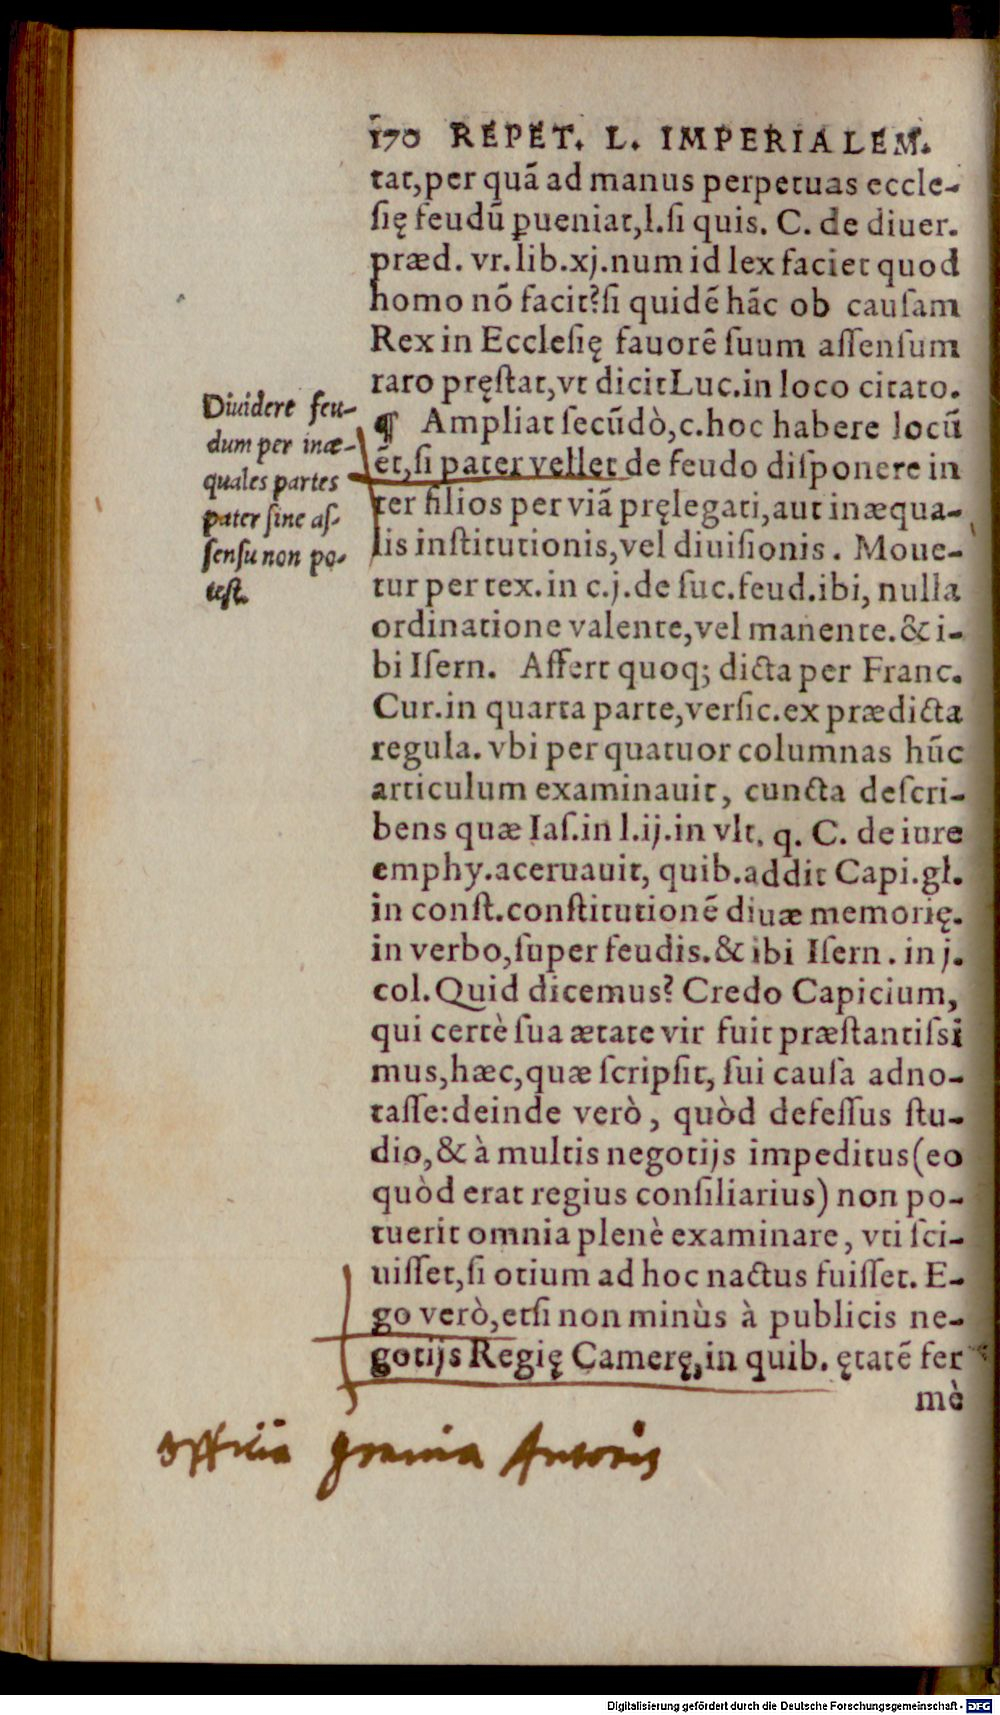 170 REPET. L. IMPERIALEM.
tat,per quã ad manus perpetuas eccle-
ſię feudũ ꝓueniat,l.ſi quis. C. de diuer.
præd. vr.lib.xj.num id lex faciet quod
homo nõ facit?ſi quidẽ hãc ob cauſam
Rex in Eccleſię fauorẽ ſuum aſſenſum
raro pręſtat,vt dicit Luc.in loco citato.
¶ Ampliat ſecũdò,c.hoc habere locũ
ẽt,ſi pater vellet de feudo diſponere in
ter filios per viã pręlegati,aut inæqua-
lis inſtitutionis,vel diuiſionis. Moue-
tur per tex.in c.j.de ſuc.feud.ibi, nulla
ordinatione valente,vel manente.& i-
bi Iſern. Affert quoq; dicta per Franc.
Cur.in quarta parte,verſic.ex prædicta
regula. vbi per quatuor columnas hũc
articulum examinauit, cuncta deſcri-
bens quæ Iaſ.in l.ij.in vlt. q. C. de iure
emphy.aceruauit, quib.addit Capi.gł.
in conſt.conſtitutionẽ diuæ memorię.
in verbo,ſuper feudis.& ibi Iſern. in j.
col.Quid dicemus? Credo Capicium,
qui certè ſua ætate vir fuit præſtantiſsi
mus,hæc,quæ ſcripſit, ſui cauſa adno-
taſſe:deinde verò, quòd defeſſus ſtu-
dio,& à multis negotijs impeditus(eo
quòd erat regius conſiliarius) non po-
tuerit omnia plenè examinare, vti ſci-
uiſſet,ſi otium ad hoc nactus fuiſſet. E-
go verò,etſi non minùs à publicis ne-
gotijs Regię Camerę,in quib. ętatẽ fer
mè
Diuidere feu-
dum per inæ-
quales partes
pater ſine aſ-
ſenſu non po-
teſt.
officia gravia Autoris
Digitalisierung gefördert durch die Deutsche Forschungsgemeinschaft - DFG